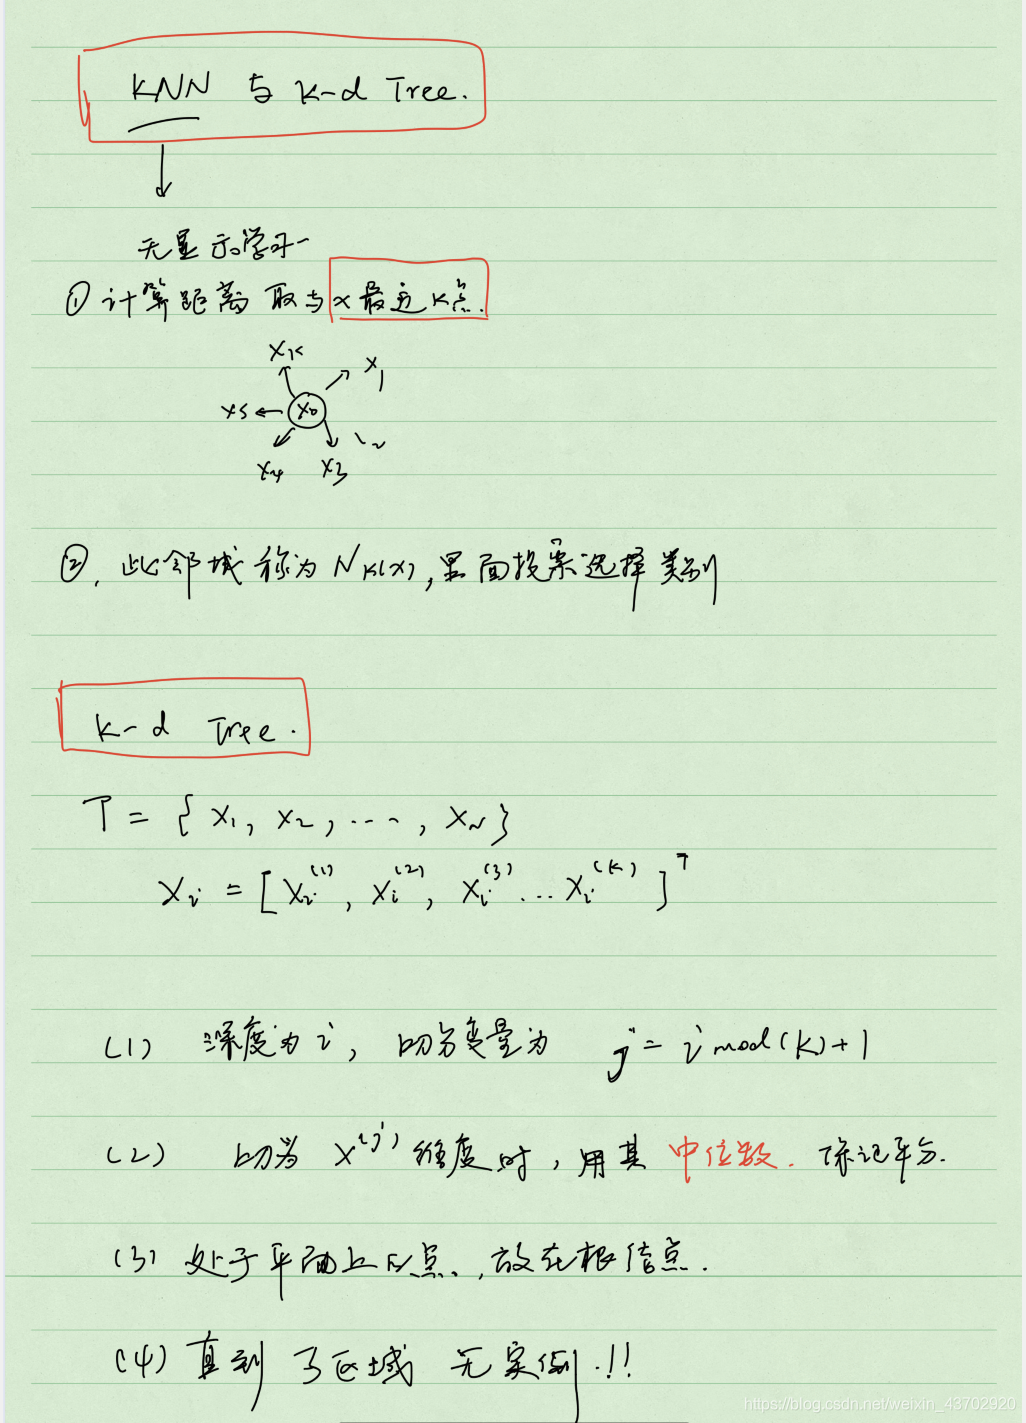 KNN 与 K-d Tree.
无显示学习
① 计算距离 取与x最近K点.
XK
X1
X5
X0
X4
X3
②. 此邻域称为 NK(X), 里面投票选择类别
K-d Tree.
T = { X1, X2, ..., XN }
Xi = [ Xi(1), Xi(2), Xi(3) ... Xi(K) ]T
(1) 深度为 i, 切分变量为 j = i mod(K)+1
(2) 切分 X(j) 维度时, 用其 中位数. 保证平分.
(3) 处于平面上的点, 放在根结点.
(4) 直到 子区域 无实例.!!
https://blog.csdn.net/weixin_43702920